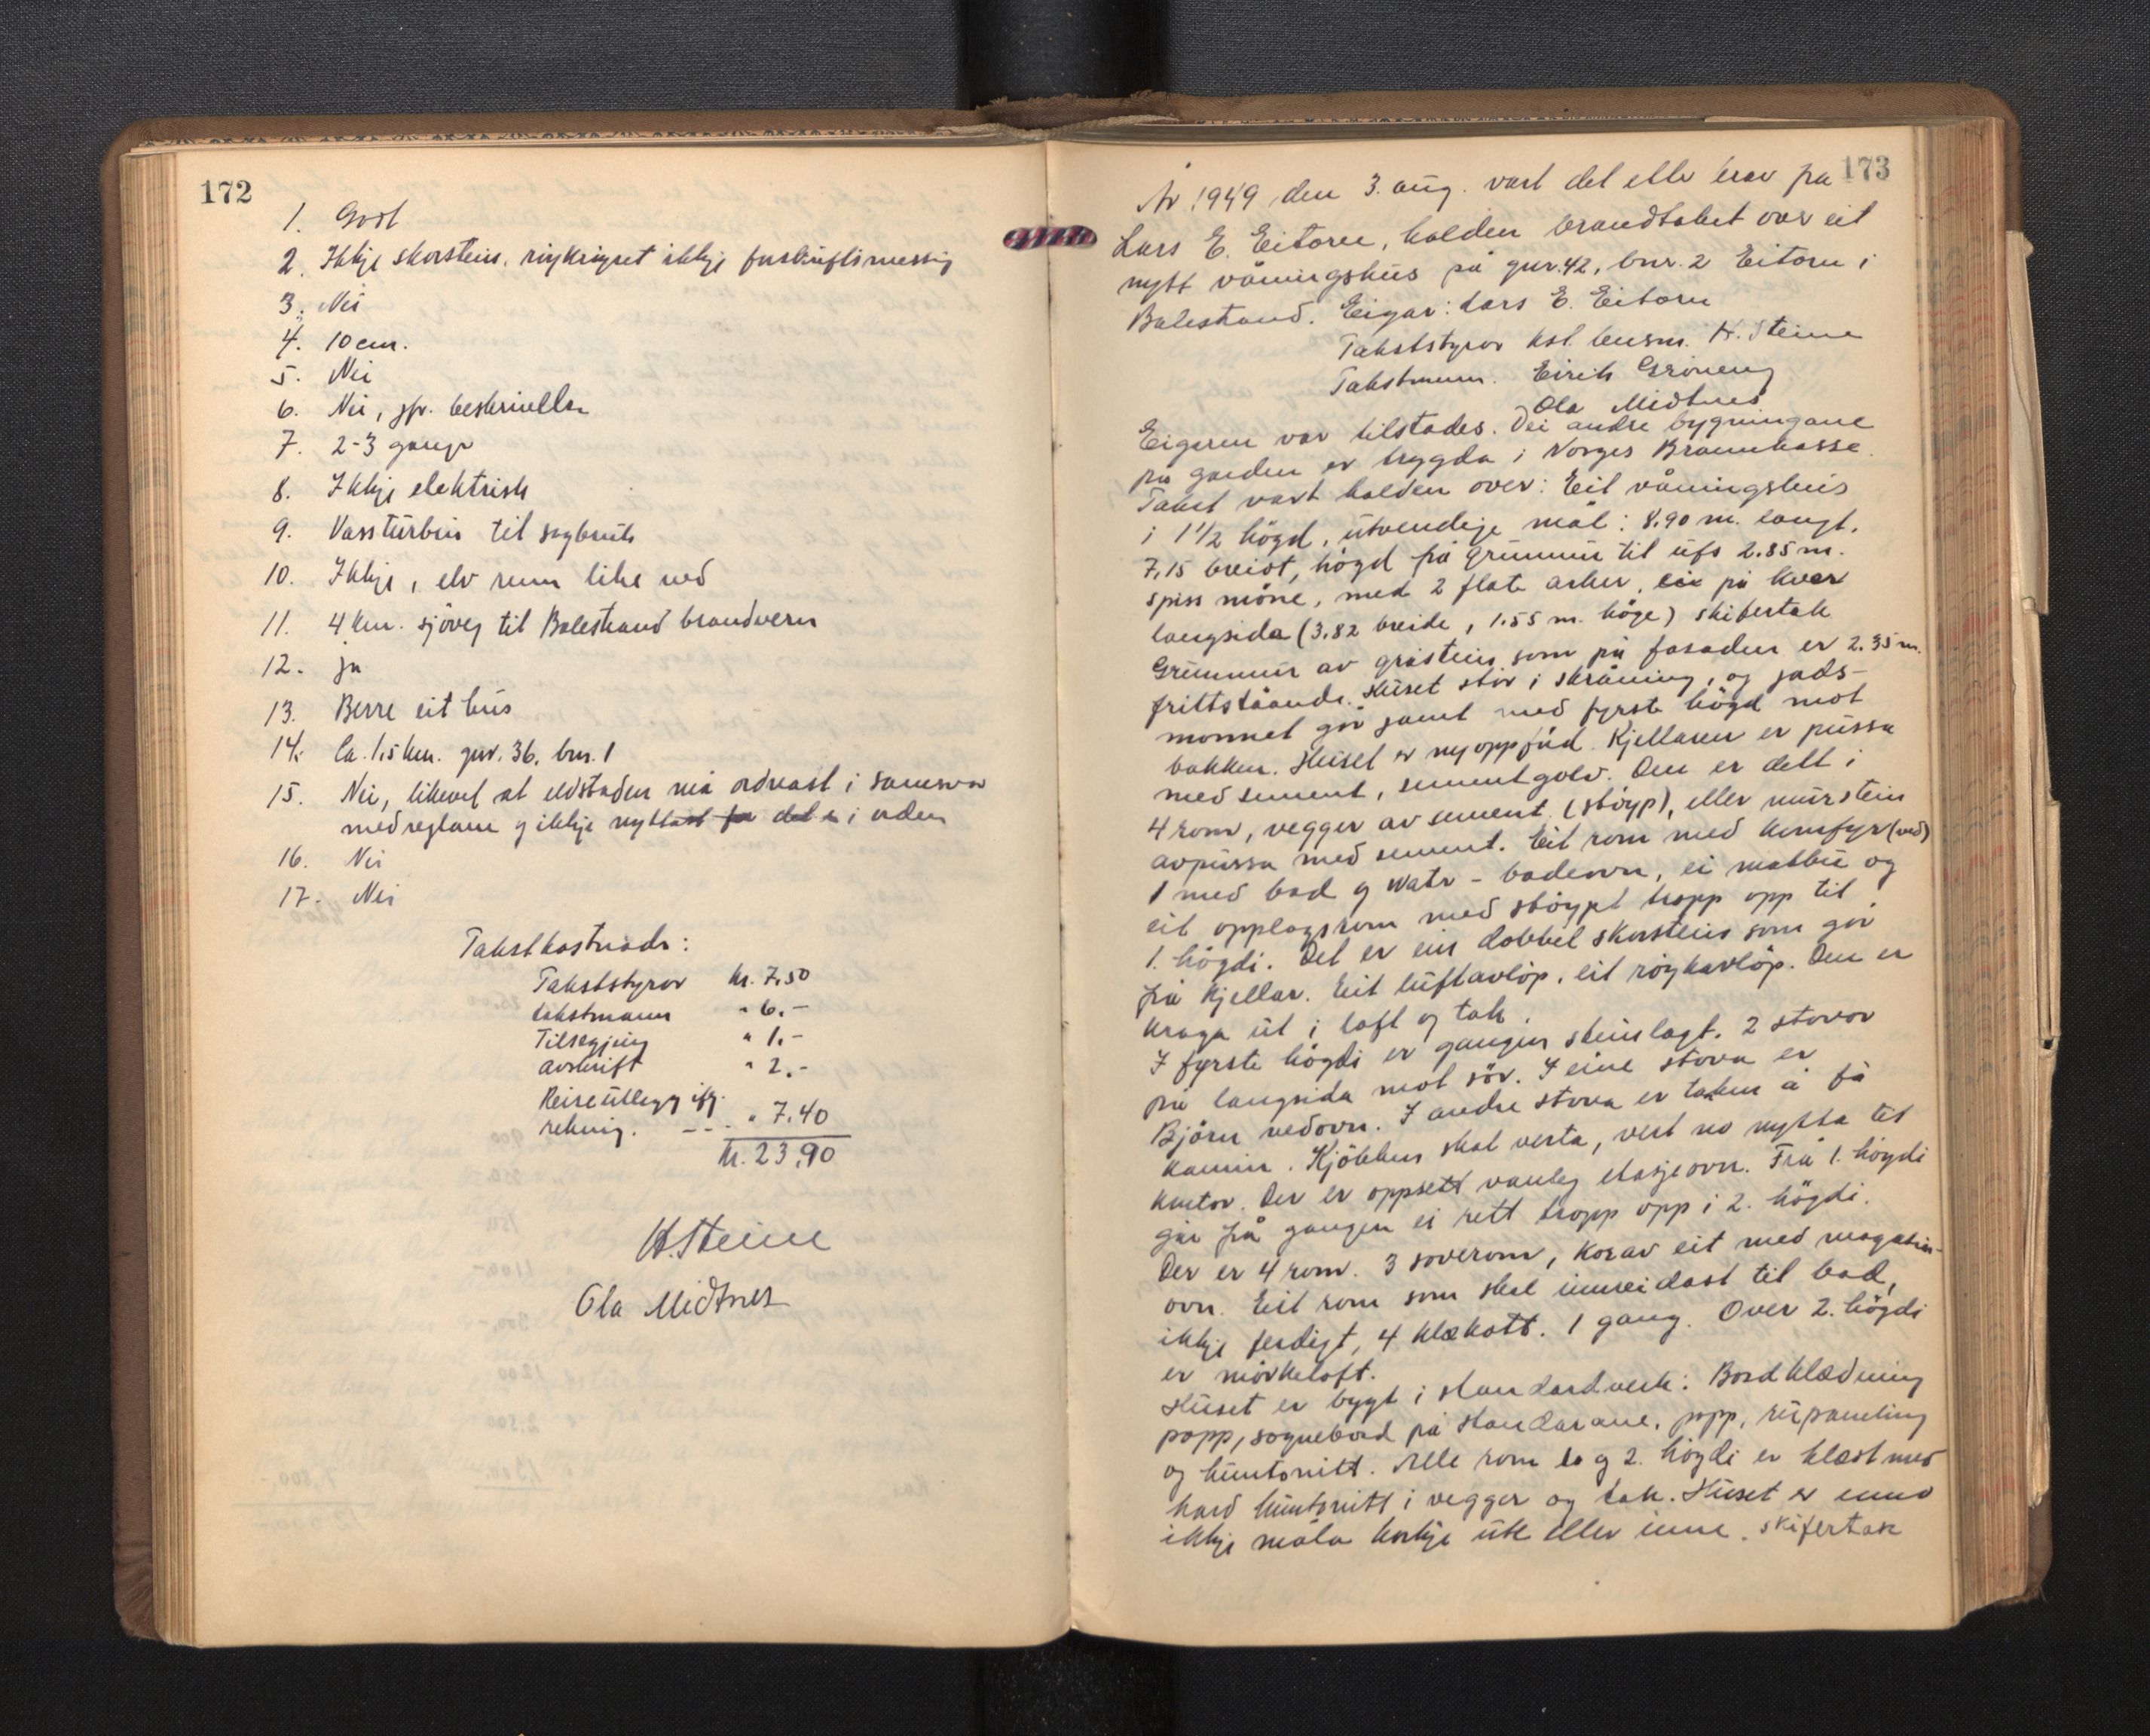 172
1. Godt
2. Ikkje skorstein, røykrøyret ikkje forskriftsmessig
3. Nei
4. 10 cm.
5. Nei
6. Nei, jfr. beskrivelse
7. 2-3 gange
8. Ikkje elektrisk
9. Vassturbin til sagbruk
10. Ikkje, elv renn like ved
11. 4 km. sjöveg til Balestrand brandvern
12. ja
13. Berre eit hus
14. Ca. 1,5 km. gnr. 36, bnr. 1
15. Nei, likevel at eldstaden må ordnast i samsvar
med reglane og ikkje nyttast før det er i orden
16. Nei
17. Nei
Takstkostnader:
Takststyrar kr. 7,50
takstmann " 6.-
Tilsegjing " 1.-
Avskrift " 2.-
Reiseutlegg ifg.
rekning. --- " 7.40
kr. 23,90
H. Steine
Ola Midtnes
173
År 1949 den 3. aug. vart det etter krav frå
Lars E. Eitorn, halden brandtakst over eit
nytt våningshus på gnr. 42, bnr. 2 Eitorn i
Balestrand. Eigar: Lars E. Eitorn
Takststyrar kst. lensm. H. Steine
Takstmenn. Eirik Gröneng
Ola Midtnes
Eigaren var tilstades. Dei andre bygningane
på garden er trygda i Norges Brannkasse.
Takst vart halden over: Eit våningshus
i 1 1/2 högd, utvendige mål: 8.90 m. langt,
7,15 breidt, högd frå grunnmur til ufs 2.85 m.
spiss möne, med 2 flate arker, ein på kver
langsida (3,82 breide, 1.55 m. höge) skifertak
Grunnmur av gråstein som på fasaden er 2.35 m.
frittståande. Huset står i skråning, og jads-
monnet går jamt med fyrste högd mot
bakken. Huset er nyoppfört. Kjellaren er pussa
med sement, sementgolv. Den er delt i
4 rom, vegger av sement (støyp), eller murstein
avpussa med sement. Eit rom med komfyr (ved)
1 med bad og watr-badeovn, ei matbu og
eit opplagsrom med stöypt tropp opp til
1. högdi. Det er ein dobbel skorstein som går
frå kjellar. Eit luftavlöp, eit röykavlöp. Den er
kraga ut i loft og tak.
I fyrste högdi er gangen steinlagt. 2 stovor
på langsida mot sör. I eine stova er
Björn vedovn. I andre stova er tanken å få
kamin. Kjökken skal verta, vert no nytta til
kontor. Der er oppsett vanleg etasjeovn. Frå 1. högdi
går frå gangen ei rett tropp opp i 2. högdi.
Der er 4 rom. 3 soverom, korav eit med magasin-
ovn. Eit rom som skal innreidast til bad,
ikkje ferdigt, 4 klekott. 1 gang. Over 2. högdi
er mörkeloft.
Huset er bygt i standardverk: Bordklædning
papp, sognebord på standarane, papp, rupaneling
og huntonitt. Alle rom 1 og 2. högdi er klædt med
hard huntonitt i vegger og tak. Huset er enno
ikkje måla korkje ute eller inne. Skifertak